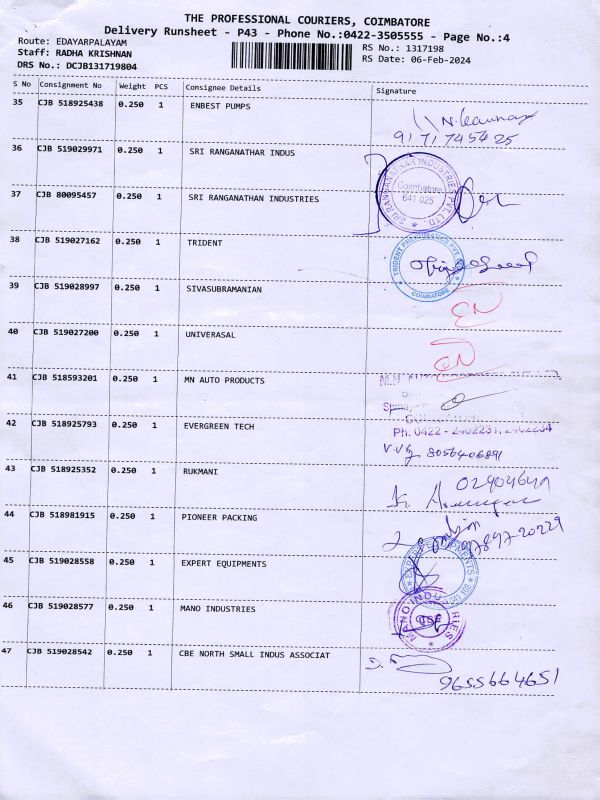 THE PROFESSIONAL COURIERS, COIMBATORE
Delivery Runsheet - P43 - Phone No.:0422-3505555 - Page No.:4
Route: EDAYARPALAYAM
Staff: RADHA KRISHNAN
DRS No.: DCJB131719804
RS No.: 1317198
RS Date: 06-Feb-2024
S No Consignment No Weight PCS Consignee Details Signature
35 CJB 518925438 0.250 1 ENBEST PUMPS
9171745425
36 CJB 519029971 0.250 1 SRI RANGANATHAR INDUS
SRI RANGANATHAR INDUSTRIES PVT. LTD.
Coimbatore
641 025
37 CJB 80095457 0.250 1 SRI RANGANATHAN INDUSTRIES
38 CJB 519027162 0.250 1 TRIDENT
TRIDENT PNEUMATICS PVT.
COIMBATORE
39 CJB 519028997 0.250 1 SIVASUBRAMANIAN
EN
40 CJB 519027200 0.250 1 UNIVERASAL
EN
41 CJB 518593201 0.250 1 MN AUTO PRODUCTS
Ph: 0422 - 2402231, 2402234
42 CJB 518925793 0.250 1 EVERGREEN TECH
8056406891
43 CJB 518925352 0.250 1 RUKMANI
44 CJB 518981915 0.250 1 PIONEER PACKING
97897-20229
45 CJB 519028558 0.250 1 EXPERT EQUIPMENTS
EXPERT EQUIPMENTS
46 CJB 519028577 0.250 1 MANO INDUSTRIES
MANO INDUSTRIES
CBE
47 CJB 519028542 0.250 1 CBE NORTH SMALL INDUS ASSOCIAT
9655664651